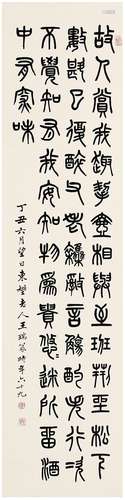 故人賞我趣挈壺相與至班荊坐松下
數斟已復醉父老雜亂言觴酌失行次
不覺知有我安知物為貴悠悠迷所留酒
中有深味
丁丑六月望日東望老人王福厂時年六十九